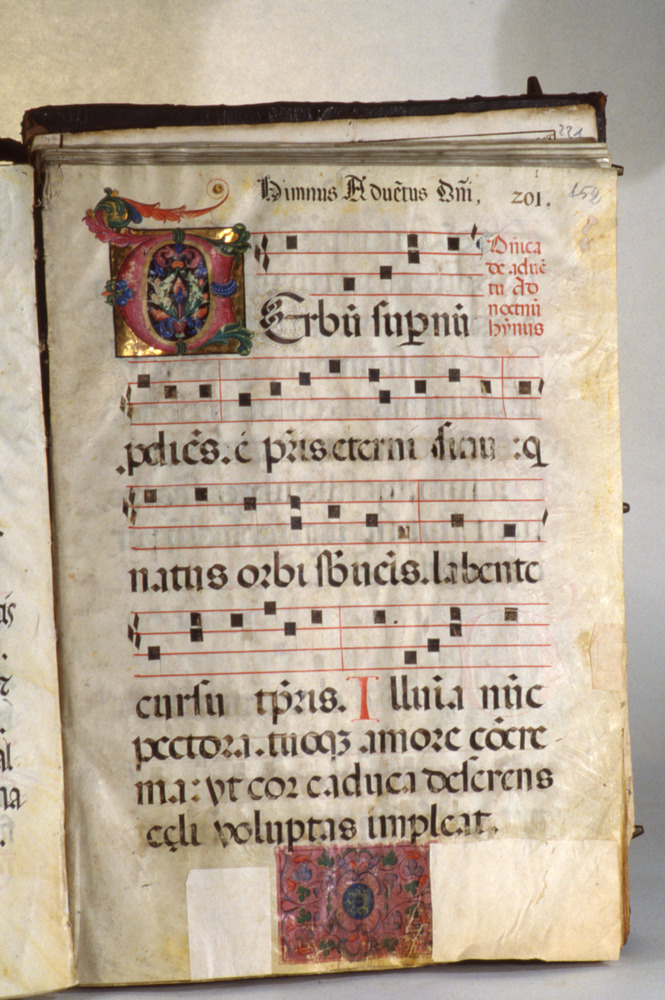 221
Himnus Aduẽtus Dñi, 201. 152
Dñica
de aduẽ
tu Ad
noctnũ
hỹnus
VErbũ sup̱nũ
pdiẽs. é pr̃is eterni :q
natus orbi sb̃ueĩs. labente
cursu tp̃ris. Illuĩa nũc
pectora. tuoqʒ amore cõcre
ma: vt cor caduca deserens
cęli voluptas impleat.